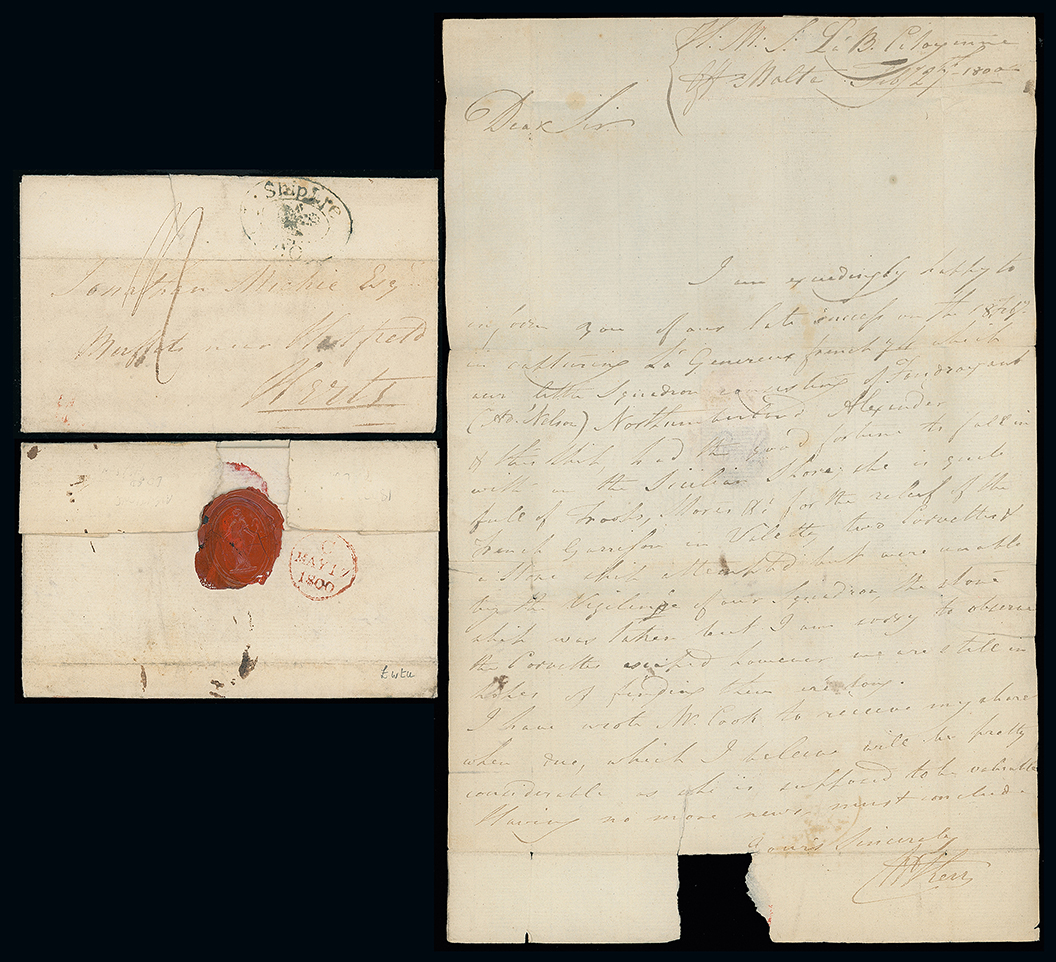 Ship Le
Jonathan Michie Esqr
near Hatfield
Herts
C
MAY 17
1800
H. M. S. La B. Citoyenne
off Malta Feby 27th 1800
Dear Sir
I am exceedingly happy to
inform you of our late success on the 18th
in capturing La Genereux french which
our little Squadron consisting of Foudroyant
(Ad. Nelson) Northumberland Alexander
& this Ship had the good fortune to fall in
with on the Sicilian Shore, she is quite
full of Troops, Stores &c for the relief of the
French Garrison in Valetta two Corvettes &
a Store ship attempted but were unable
by the Vigilence of our Squadron, the store
ship was taken but I am sorry to observe
the Corvettes escaped however we are still in
hopes of finding them ere long.
I have wrote Mr. Cook to receive my share
when due, which I believe will be pretty
considerable as she is supposed to be valuable
Having no more news must conclude
Yours Sincerely
Kerr